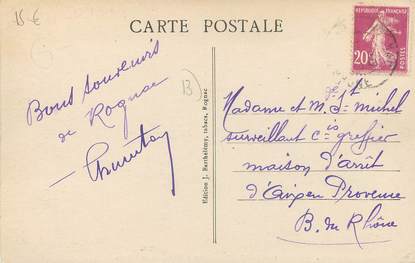 15 €
CARTE POSTALE
REPUBLIQUE FRANÇAISE
20c
POSTES
Bons souvenirs
de Rognac
B
Edition J. Barthélémy, tabacs, Rognac
Madame et M. St michel
surveillant cis greffier
maison d'arrêt
d'Aix en Provence
B. du Rhône